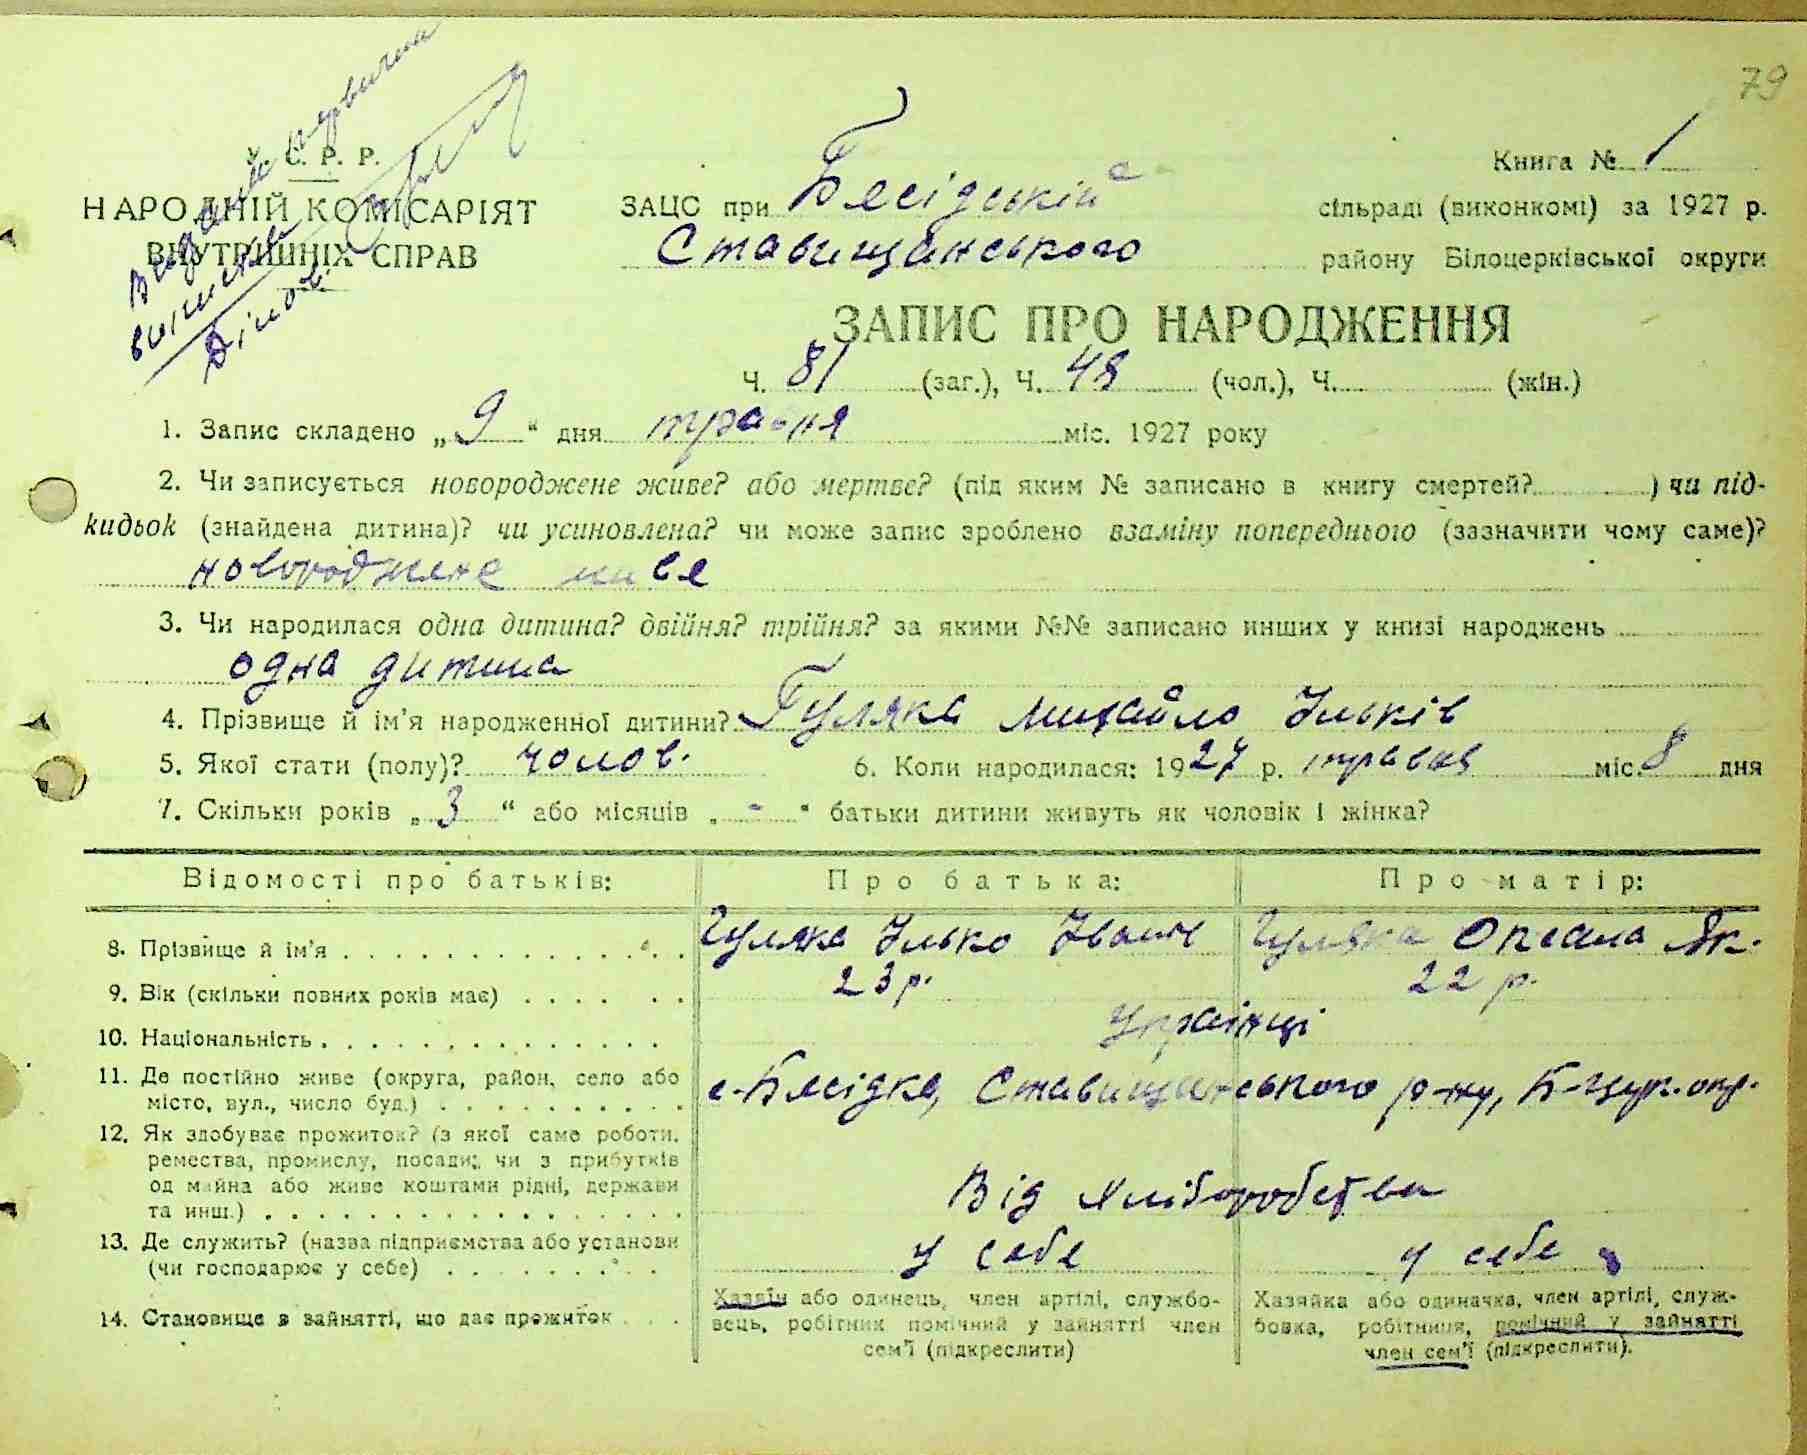 79
У. С. Р. Р.
НАРОДНІЙ КОМІСАРІЯТ
ВНУТРІШНІХ СПРАВ
Видано первична
виписка
ЗАЦС при Бесідській
Ставищанського
Книга № 1
сільраді (виконкомі) за 1927 р.
району Білоцерківської округи
ЗАПИС ПРО НАРОДЖЕННЯ
Ч. 81 (заг.), Ч. 48 (чол.), Ч. (жін.)
1. Запис складено „ 9 “ дня травня міс. 1927 року
2. Чи записується новороджене живе? або мертве? (під яким № записано в книгу смертей? ) чи під-
кидьок (знайдена дитина)? чи усиновлена? чи може запис зроблено взаміну попереднього (зазначити чому саме)?
новороджене живе
3. Чи народилася одна дитина? двійня? трійня? за якими №№ записано инших у книзі народжень
одна дитина
4. Прізвище й ім'я народженної дитини? Гуляка Михайло Ільків
5. Якої стати (полу)? чолов. 6. Коли народилася: 1927 р. травня міс. 8 дня
7. Скільки років „ 3 “ або місяців „ - “ батьки дитини живуть як чоловік і жінка?
Відомості про батьків: Про батька: Про матір:
8. Прізвище й ім'я Гуляка Ілько Іванів Гуляка Оксана Як.
9. Вік (скільки повних років має) 23 р. 22 р.
10. Національність Українці
11. Де постійно живе (округа, район, село або
місто, вул., число буд.) с. Бесідка, Ставищанського р-ну, Б-Церк. окр.
12. Як здобуває прожиток? (з якої саме роботи,
ремества, промислу, посади; чи з прибутків
од майна або живе коштами рідні, держави
та инш.) Від хліборобства
13. Де служить? (назва підприємства або установи
(чи господарює у себе) у себе у себе
14. Становище в зайнятті, що дає прожиток
Хазяїн або одинець, член артілі, службо-
вець, робітник помічний у зайнятті член
сем'ї (підкреслити)
Хазяйка або одиначка, член артілі, служ-
бовка, робітниця, помічний у зайнятті
член сем'ї (підкреслити).